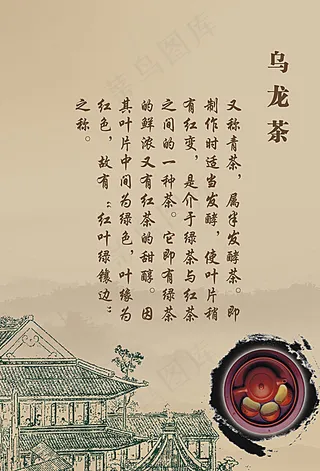 乌龙茶
又称青茶，属半发酵茶。即
制作时适当发酵，使叶片稍
有红变，是介于绿茶与红茶
之间的一种茶。它即有绿茶
的鲜浓又有红茶的甜醇。因
其叶片中间为绿色，叶缘为
红色，故有“红叶绿镶边”
之称。